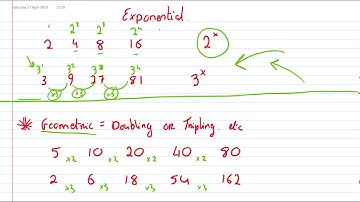 Saturday 27 April 2019 15:59
Exponential
1 2² 2³ 2⁴
2 4 8 16 2ˣ
3¹ 3² 3³ 3⁴
3 9 27 81 3ˣ
×3 ×3 ×3
Geometric = Doubling or Tripling etc
5 ×2 10 ×2 20 ×2 40 ×2 80
2 ×3 6 ×3 18 ×3 54 ×3 162